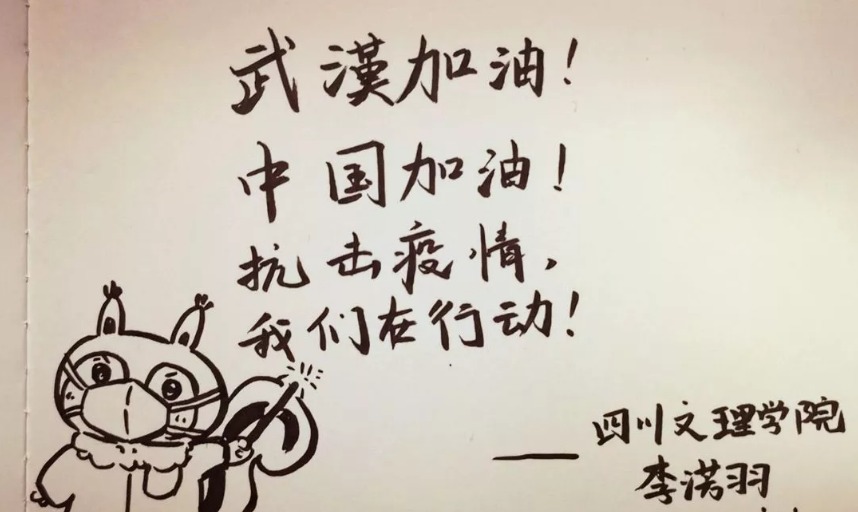 武漢加油！
中国加油！
抗击疫情，
我们在行动！
——四川文理学院
李渃羽